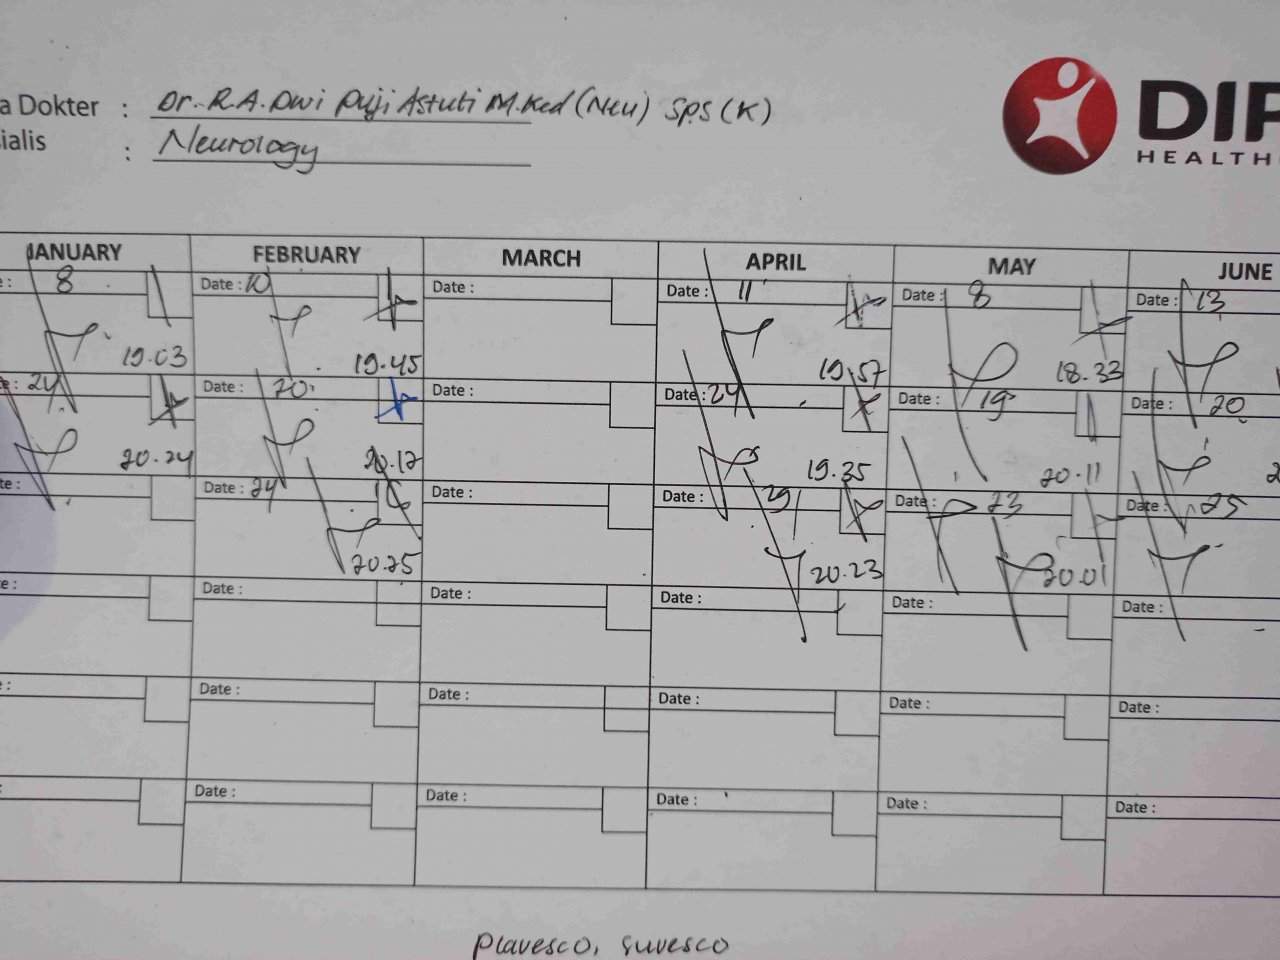 a Dokter : Dr. R.A. Dwi Puji Astuti M.Ked (Neu) SpS (K)
ialis : Neurology
DIP
HEALTHC
JANUARY FEBRUARY MARCH APRIL MAY JUNE
e : 8 Date : 10 Date : Date : 11 Date : 8 Date : 13
19.03 19.45 19.57 18.33
e : 24 Date : 20 Date : Date : 24 Date : 19 Date : 20
20.24 20.12 19.35 20.11 2
te : Date : 24 Date : Date : 29 Date : 23 Date : 25
20.25 20.23 20.01
e : Date : Date : Date : Date : Date :
: Date : Date : Date : Date : Date :
: Date : Date : Date : Date : Date :
Plavesco, suvesco